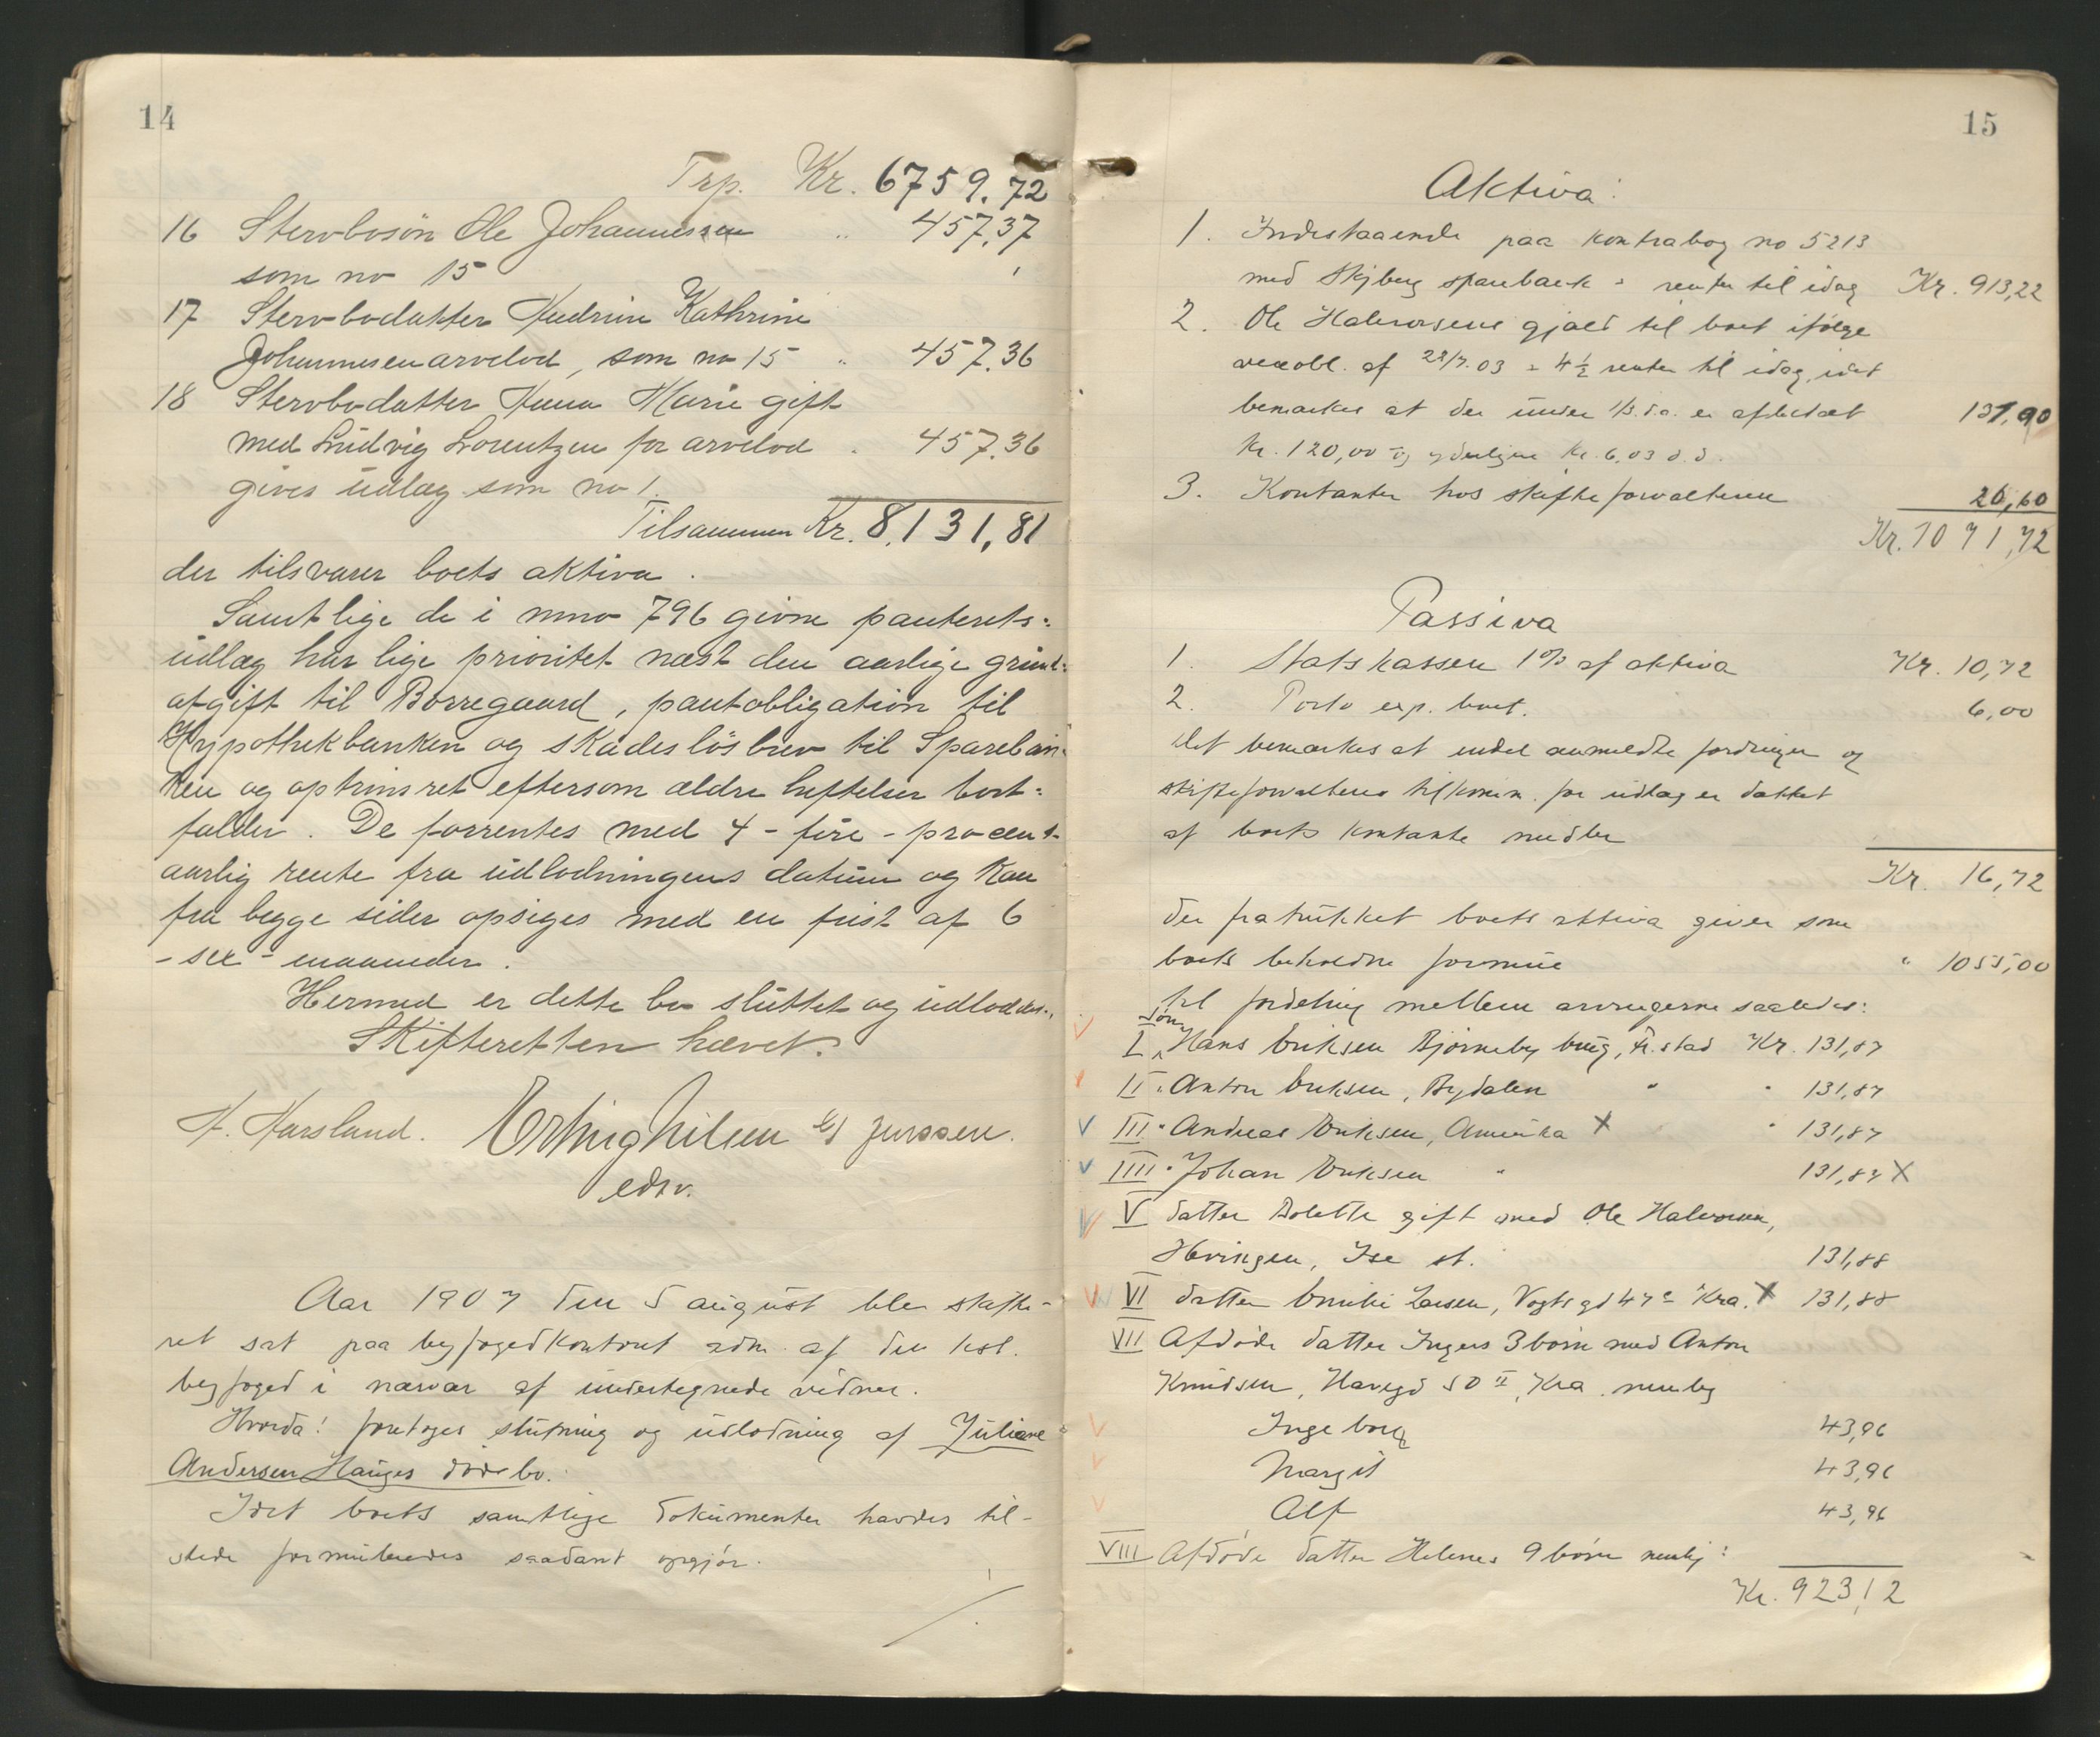 14
Trp. Kr. 6759.72
16 Stervbosön Ole Johannessen " 457,37
som no 15
17 Stervbodatter Kathrine
Johannesen arvelod, som no 15 " 457.36
18 Stervbodatter Anna Marie gift
med Ludvig Lorentzen for arvelod " 457.36
gives udlæg som no 1.
Tilsammen Kr. 8.131,81
der tilsvarer boets aktiva.
Samtlige de i mno 796 givne panterets-
udlæg har lige prioritet næst den aarlige grund-
afgift til Borregaard, pantobligation til
Hypothekbanken og skadeslösbrev til Spareban-
ken og optrinsret eftersom ældre heftelser bort-
falder. De forrentes med 4 - fire - procent
aarlig rente fra udlodningens datum og kan
fra begge sider opsiges med en frist af 6
- sex - maaneder.
Hermed er dette bo sluttet og udloddet.
Skifteretten hævet.
H. Harsland. Erling Nilsen
edsv.
Aar 1907 den 5 august blev skifte-
ret sat paa byfogedkontoret adm. af den kst.
byfoged i nærvær af undertegnede vidner.
Hvorda! foretoges slutning og udlodning af Juliane
Andersen Hauges dödsbo.
Idet boets samtlige dokumenter havdes til-
stede formuleredes saadant opgjör.
15
Aktiva:
1. Indestaaende paa kontrabog no 5213
med Skjberg sparebank + renter til idag Kr. 913,22
2. Ole Halvorsens gjæld til boet ifölge
vexelobl. af 28/7.03 + 4½ renter til idag, idet
bemærkes at der under 1/3. d.a. er afbetalt 131,90
Kr. 120,00 og yderligere Kr. 6,03 d.d.
3. Kontanter hos skifteforvalteren 26,60
Kr. 1071,72
Passiva
1. Statskassen 1% af aktiva Kr. 10,72
2. Porto exp. boet. 6,00
Det bemærkes at endel anmeldte fordringer og
skifteforvalterens tilkomm. for udlæg er dækket
af boets kontante midler
Kr. 16,72
der fratrukket boets aktiva giver som
boets beholdne formue " 1055,00
til fordeling mellem arvingerne saaledes:
sön
I Hans Eriksen Bjørneby brug, Fr.stad Kr. 131,87
II " Anton Eriksen, Bydalen " " 131,87
III " Andreas Eriksen, Amerika X " 131,87
IIII " Johan Eriksen " 131,87 X
V datter Bolette gift med Ole Halvorsen,
Hvingen, Ise st. 131,88
VI datter Emilie Larsen, Vogtsgd 47 Kra. X 131,88
VII Afdöde datter Ingers 3 börn med Anton
Knudsen, Havegd 50 II, Kra. nemlig
Ingeborg 43,96
Margit 43,96
Alf 43,96
VIII Afdöde datter Helenes 9 börn nemlig:
Kr. 923,12